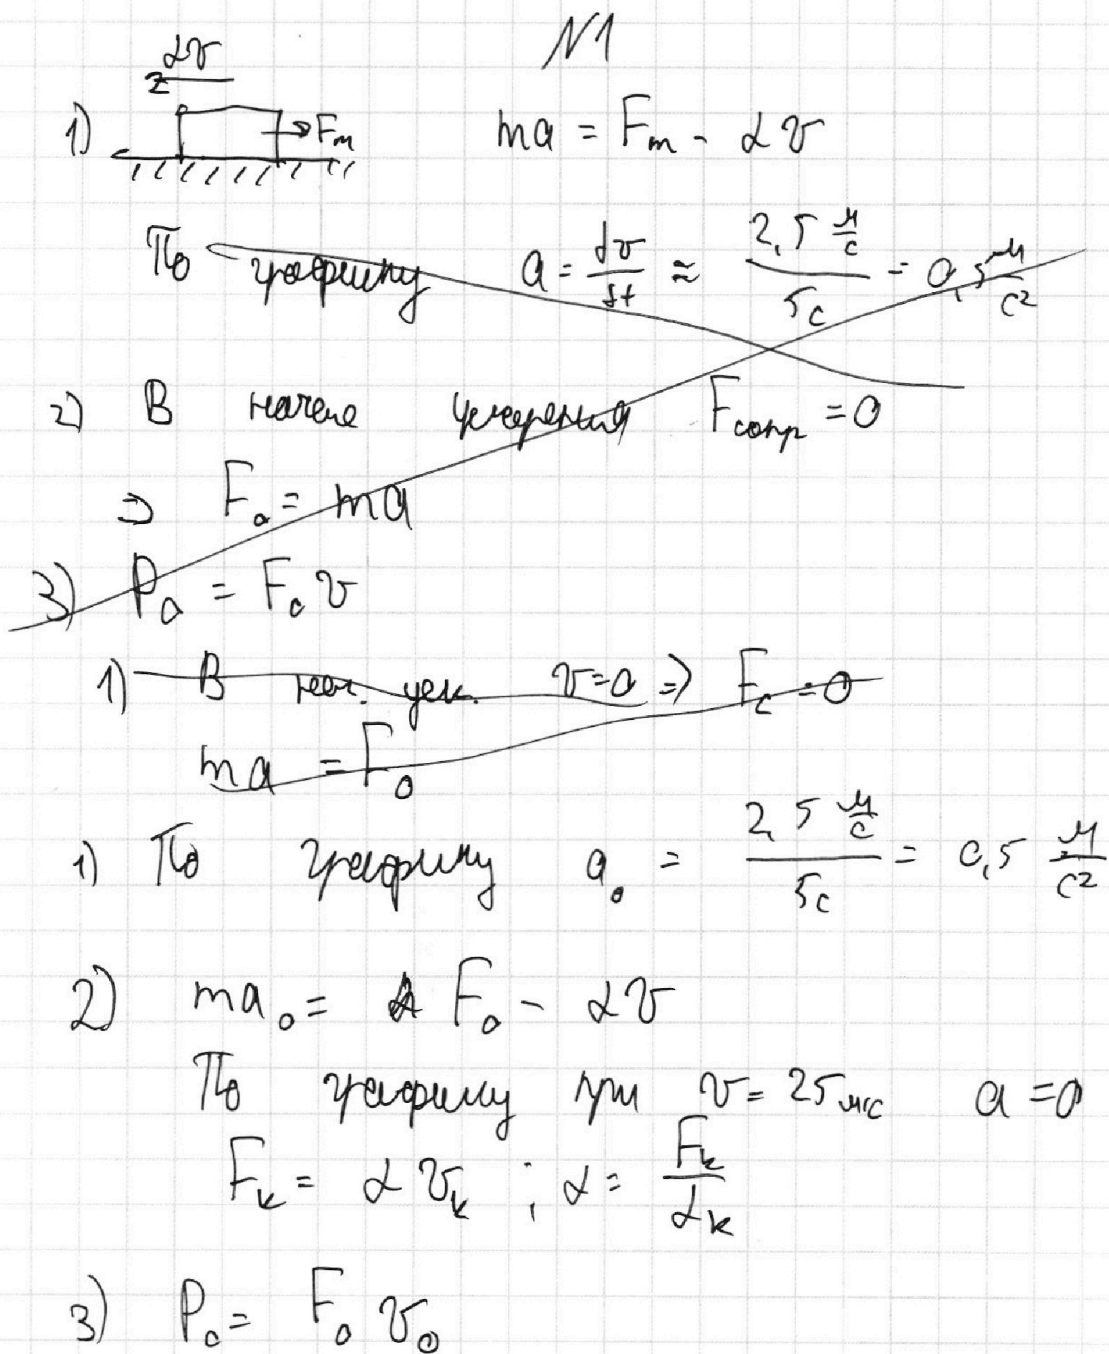 N1
αv
1) Fₘ ma = Fₘ - αv
По графику a = dv/dt ≈ 2,5 м/с / 5с = 0,5 м/с²
2) В начале ускорения Fсопр = 0
⇒ F₀ = ma
3) P₀ = F₀ v
1) В нач. уск. v=0 ⇒ Fc = 0
ma = F₀
1) По графику a₀ = 2,5 м/с / 5с = 0,5 м/с²
2) ma₀ = F₀ - αv
По графику при v = 25 м/с a = 0
Fₖ = αvₖ ; α = Fₖ/αₖ
3) P₀ = F₀ v₀